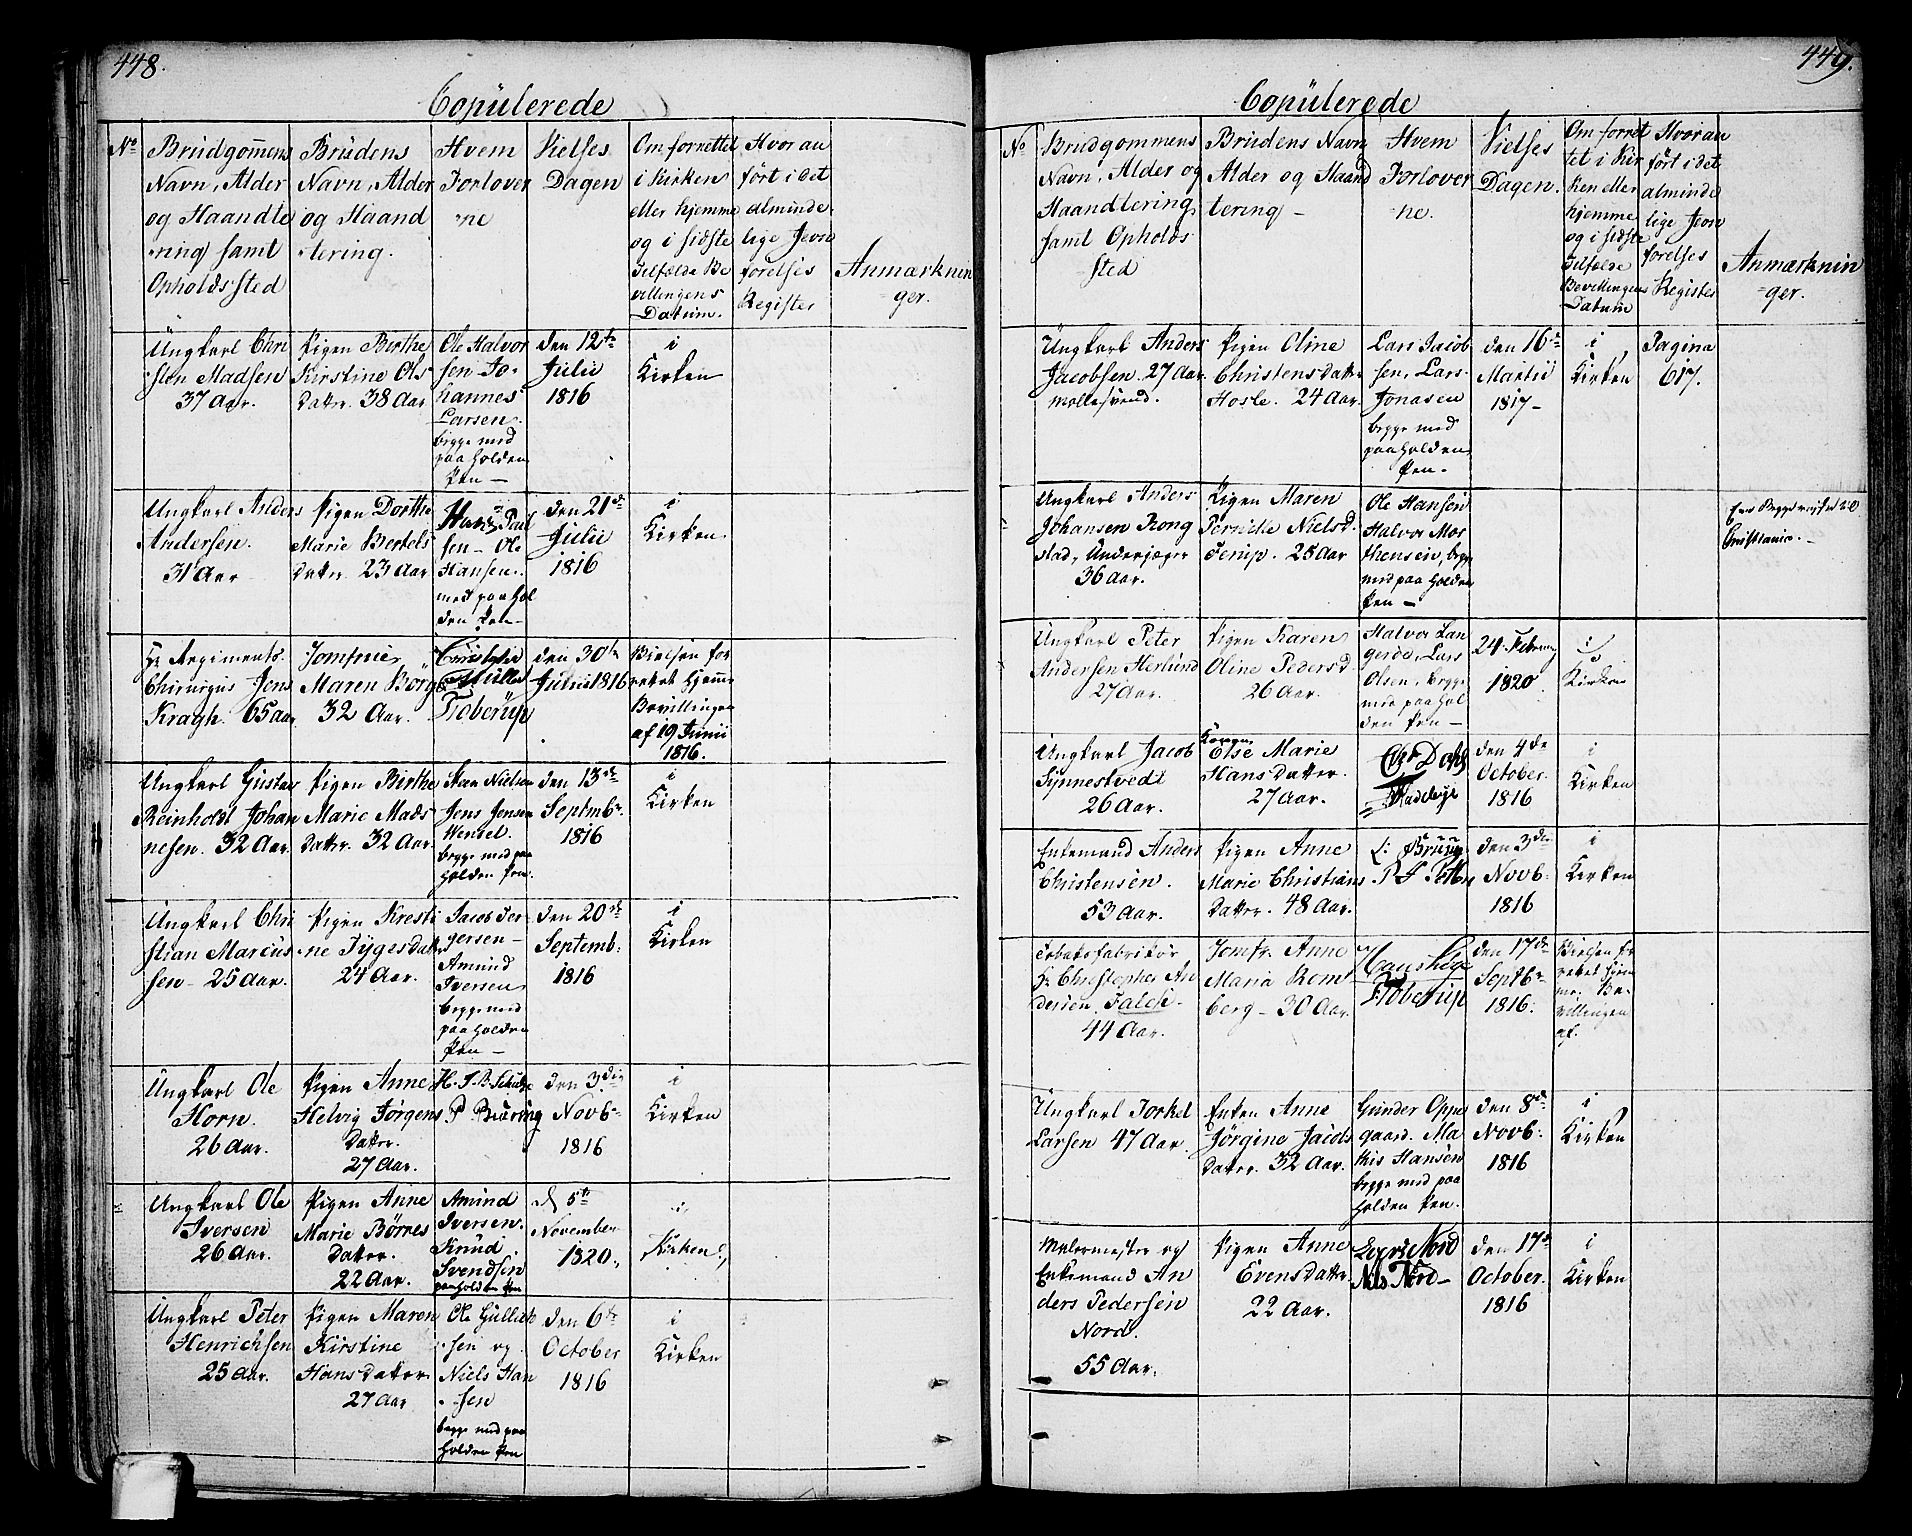 448.
Copülerede
No
Brudgom̅ens
Navn, Alder
og Haandte
ring samt
Opholds sted
Brudens
Navn, Alder
og Haand
tering.
Hvem
Forlover
ne
Vielses
Dagen
Om forrettet
i Kirken
eller hjemme
og i sidste
Tilfælde Be
villingens
Datum.
Hvor an
ført i det
alminde
lige Jevn
førelses
Register
Anmærknin
ger.
Ungkarl Chri
sten Madsen
37 Aar.
Pigen Birthe
Kirstine Ols
Datter. 38 Aar
Ole Halvor
sen Jo-
hannes
Larsen.
begge med
paaholden
Pen —
den 12te
Julii
1816
i
Kirken
Ungkarl Anders
Andersen.
31 Aar
Pigen Dorthe
Marie Bertels
Datter 23 Aar
Hans Paul
sen - Ole
Hansen.
med paahol
den Pen -
den 21de
Julii
1816
i
Kirken.
Hr Regiments-
Chirurgus Jens
Kragh. 65 aar
Jomfrue
Maren Borge
32 Aar.
Christopher
Müller
Floberüp
den 30te
Julii 1816
Vielsen for
rettet hjemme
Bevillingen
af 19 Junii
1816.
Ungkarl Gustav
Reinholdt Johan
nesen. 32 Aar.
Pigen Birthe
Marie Mads
Datter. 32 Aar.
Nielsen
Jens Jensen
Wensel.
begge med paa
holden Pen.
den 13de
Septembr.
1816
i
Kirken
Ungkarl Chri
stian Marcus
sen - 25 Aar.
Pigen Kresti
ne TygesDatter
24 Aar.
Jacob Jør
gersen -
Amund
Iversen
begge med
paaholden
Pen —
den 20de
Septemb:
1816
i
Kirken
Ungkarl Ole
Horn.
26 Aar.
Pigen Anne
Helvig Jørgens
Datter.
27 Aar.
H. J. B. Schütze
P Buöring
den 3die
Novb-
1816
i
Kirken
Ungkarl Ole
Iversen
26 Aar.
Pigen Anne
Marie Börres
Datter.
22 Aar.
Amund
Iversen.
Knud
Svendsen
paaholden Pen
d 5te
November
1820.
i
Kirken
Ungkarl Peter
Henrichsen
25 Aar.
Pigen Maren
Kirstine
Hans Datter
27 Aar
Ole Gullich
sen og
Niels Han
sen
begge med paa
holden Pen
den 6te
October
1816
i
Kirken
449.
Copülerede
No
Brudgommens
Navn, Alder og
Haandtering
samt Opholds
sted
Brudens Navn
Alder og Haand
tering -
Hvem
Forlover
ne.
Vielses
Dagen.
Om forret
tet i Kir
ken eller
hjemme
og i sidste
Tilfælde
Bevillingens
Datum
Hvor an
ført i det
alminde
lige Jevn
førelses
Register
Anmærknin
ger.
Ungkarl Anders
Jacobsen. 27 Aar
Møllesvend.
Pigen Oline
Christensdatter
Hosle. 24 Aar.
Lars Jacob
sen, Lars
Jonasen
begge med
paaholden
Pen.
den 16de
Martii
1817-
i
Kirken
Pagina
617.
Ungkarl Anders
Johansen Rong
stad, Underjæger
36 Aar.
Pigen Maren
Pernille Nielsd.
Ferup. 25 Aar
Ole Hansen
Halvor Mor
thensen, begge
med paaholden
Pen —
Christiania.
Ungkarl Peter
Andersen Herlund
27 Aar.
Pigen Karen
Oline Pedersd.
26 Aar.
Halvor Lan
gerød, Lars
Olsen, begge
med paahol
den Pen —
24. Februar
1820
i
Kirken
Ungkarl Jacob
Synnestvedt
26 Aar.
Karen
Else Marie
Hans Datter.
27 Aar.
den 4de
October.
1816
i
Kirken
Enkemand Anders
Christensen.
53 Aar.
Pigen Anne
Marie Christians
Datter. 48 Aar.
den 3die
Novb-
1816
i
Kirken
Tobaksfabrikør
Hr Christopher An
dersen Falck.
44 Aar.
Jomfr. Anne
Maria Rom
berg - 30 Aar.
Floberüp
den 17de
Septbr
1816.
Vielsen for
rettet hjem
me. Be
villingen
af.
Ungkarl Torkel
Larsen 47 Aar.
Enken Anne
Jörgine Jacobs
Datter. 32 Aar.
Gunder Oppe
gaard. Ma
this Hansen
begge med paa
holden Pen.
den 8de
Novb:
1816
i
Kirken
Malermester og
Enkemand An
ders Pedersen
Nord.
55 Aar.
Pigen Anne
Evensdatter
22 Aar.
Nord
Nils Nord-
den 17de
October.
1816
i
Kirken